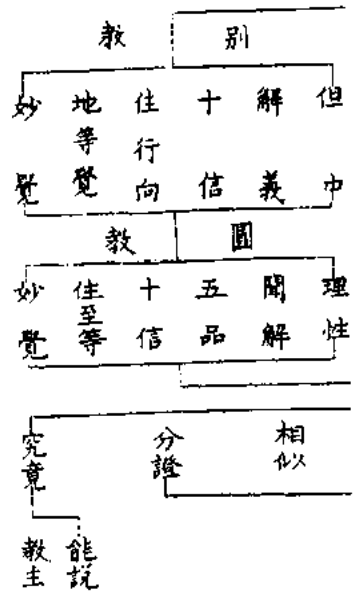 別教
但中
解義
十信
住行向
地等覺
妙覺
圓教
理性
聞解
五品
十信
住至等
妙覺
相似
分證
究竟
能說
教主